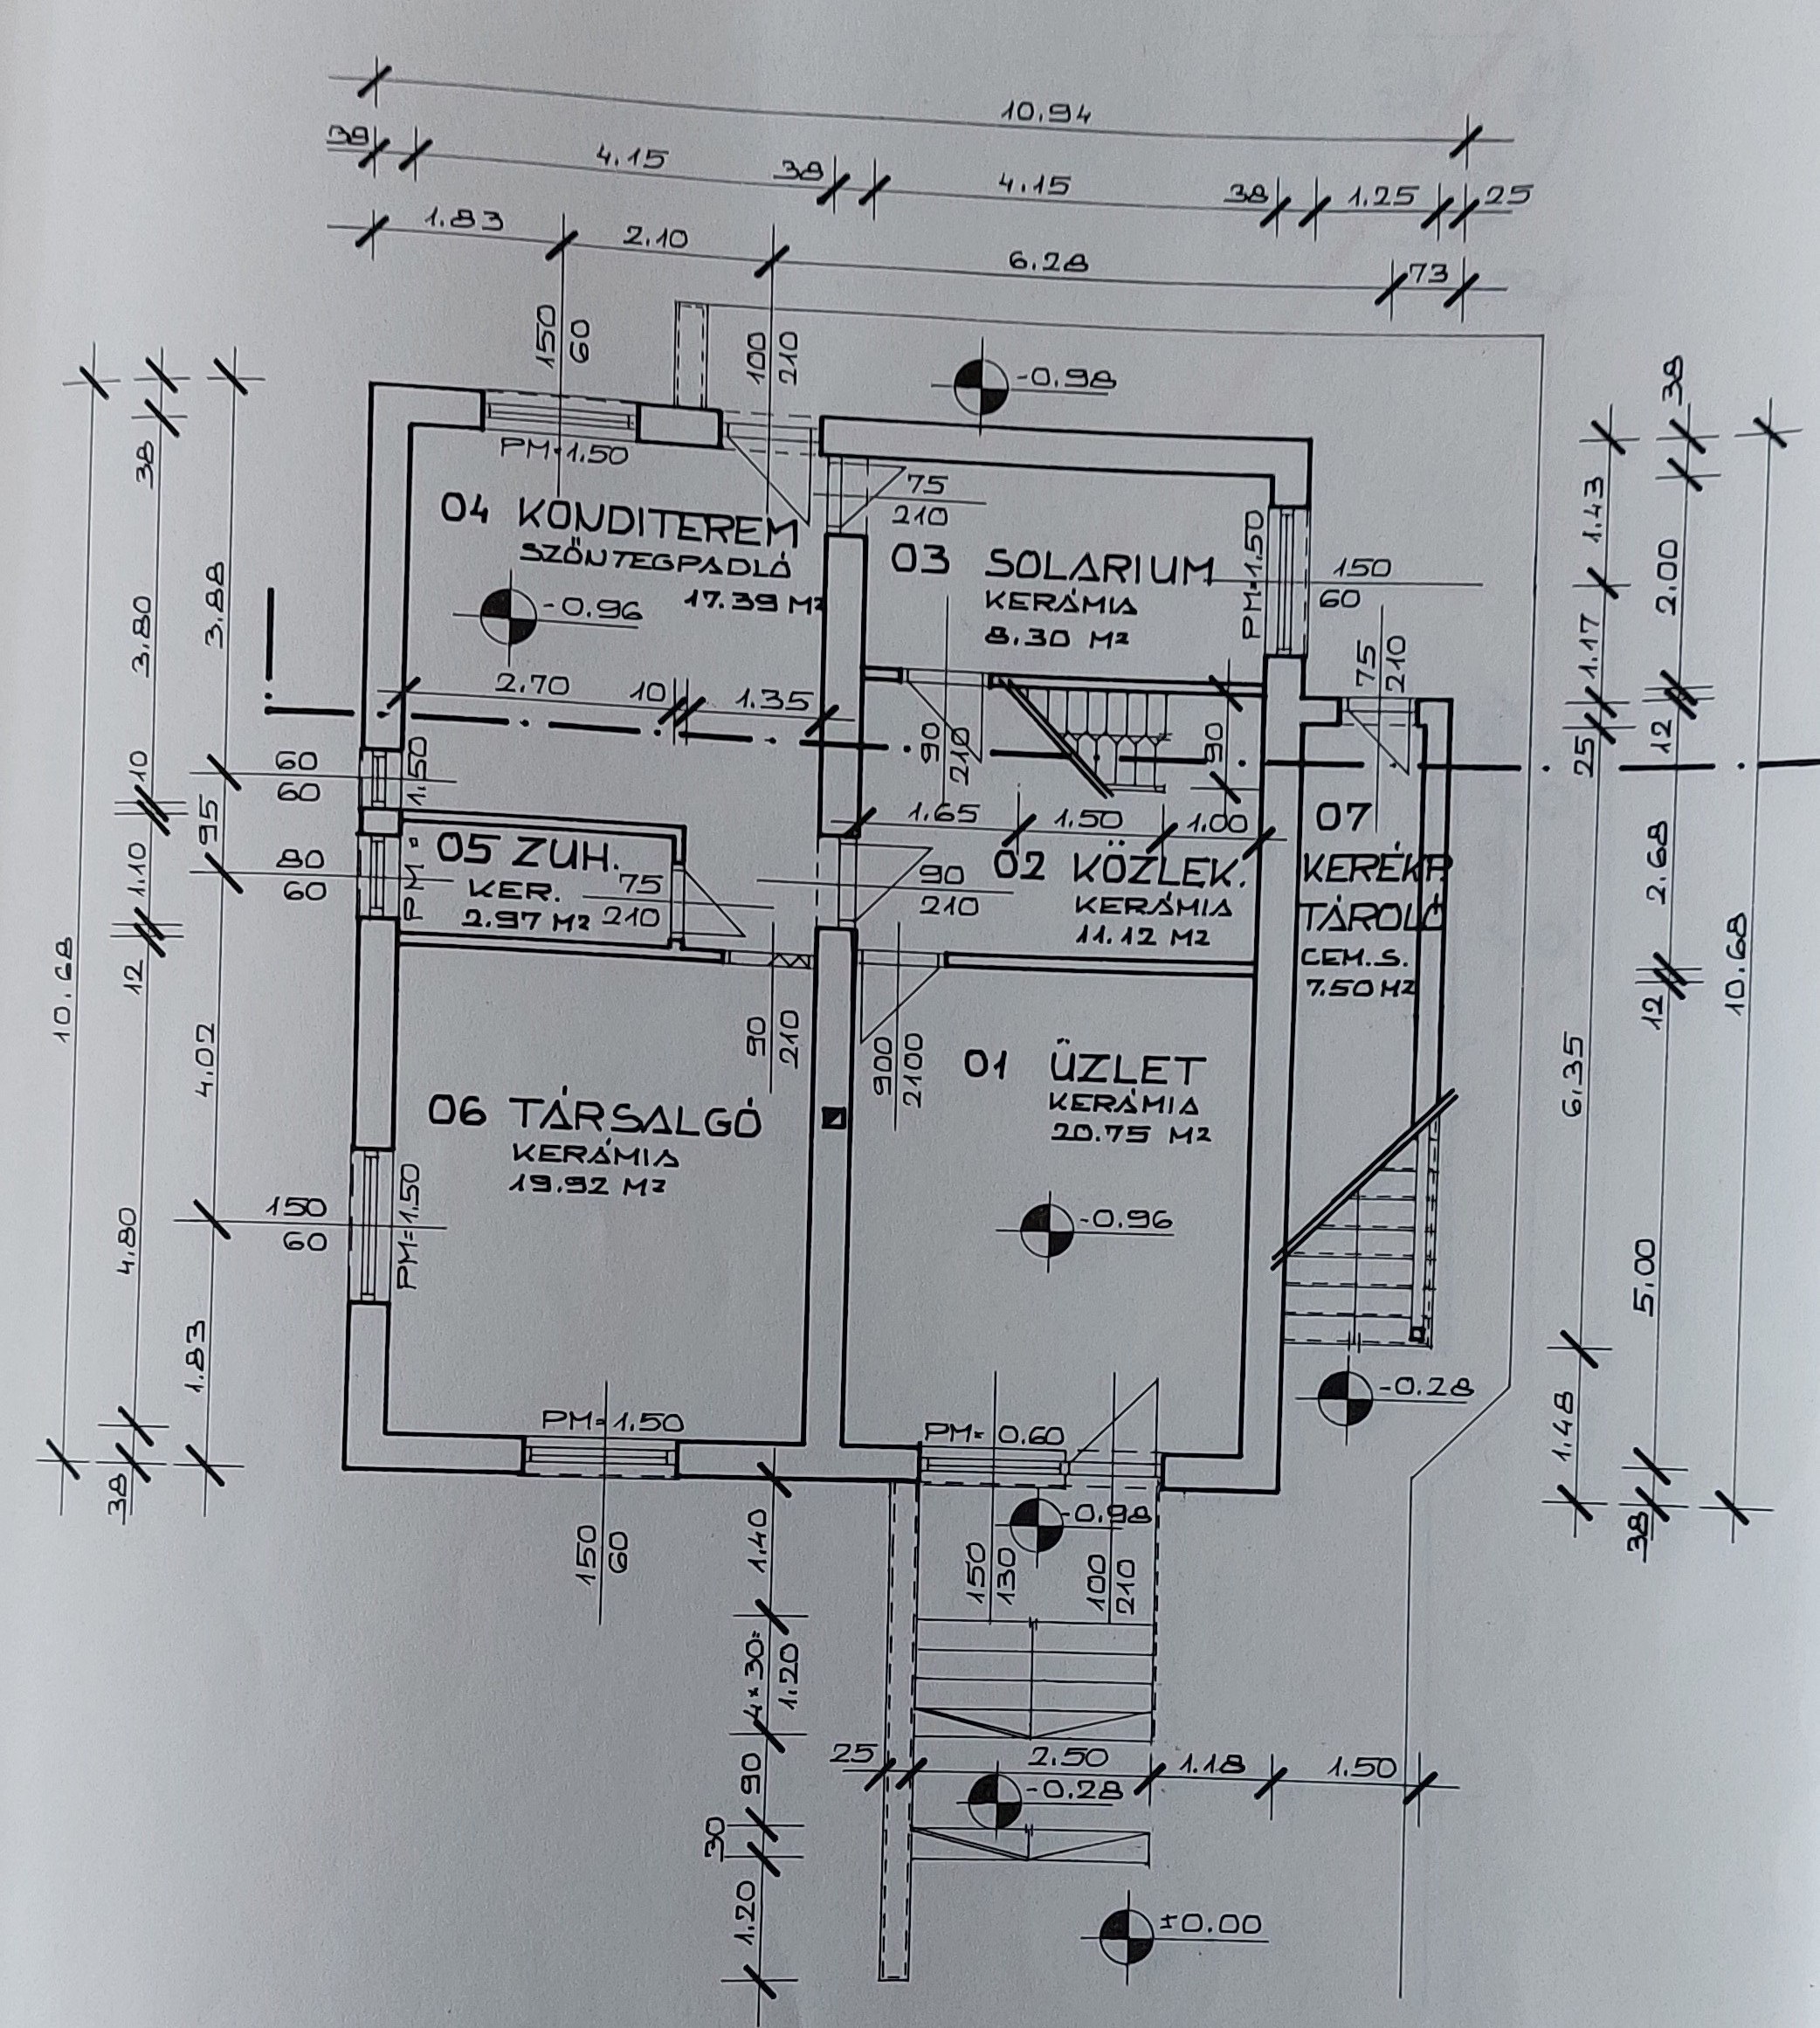 10.94
38 4.15 38 4.15 38 1.25 25
1.83 2.10 6.28 73
150
60
100
210
-0.98
PM=1.50
04 KONDITEREM
SZŐNYEGPADLÓ
17.39 M²
-0.96
75
210
03 SOLARIUM
KERÁMIA
8.30 M²
PM=1.50
150
60
75
210
2.70 10 1.35
90
210
90
60
60
80
60
PM=1.50
05 ZUH.
KER.
2.97 M²
75
210
1.65 1.50 1.00
90
210
02 KÖZLEK.
KERÁMIA
11.12 M²
07
KERÉKP
TÁROLÓ
CEM.S.
7.50 M²
90
210
900
2100
06 TÁRSALGÓ
KERÁMIA
19.92 M²
01 ÜZLET
KERÁMIA
20.75 M²
-0.96
150
60
PM=1.50
-0.28
PM=1.50
PM=0.60
150
60
-0.98
150
130
100
210
10.68
38 3.80 10 1.10 12 4.80 38
3.88 95 4.02 1.83
1.43 1.17 25 6.35 1.48
38 2.00 12 2.68 12 5.00 38
10.68
1.40
4x30=
1.20
90
30
1.20
25 2.50 1.18 1.50
-0.28
±0.00